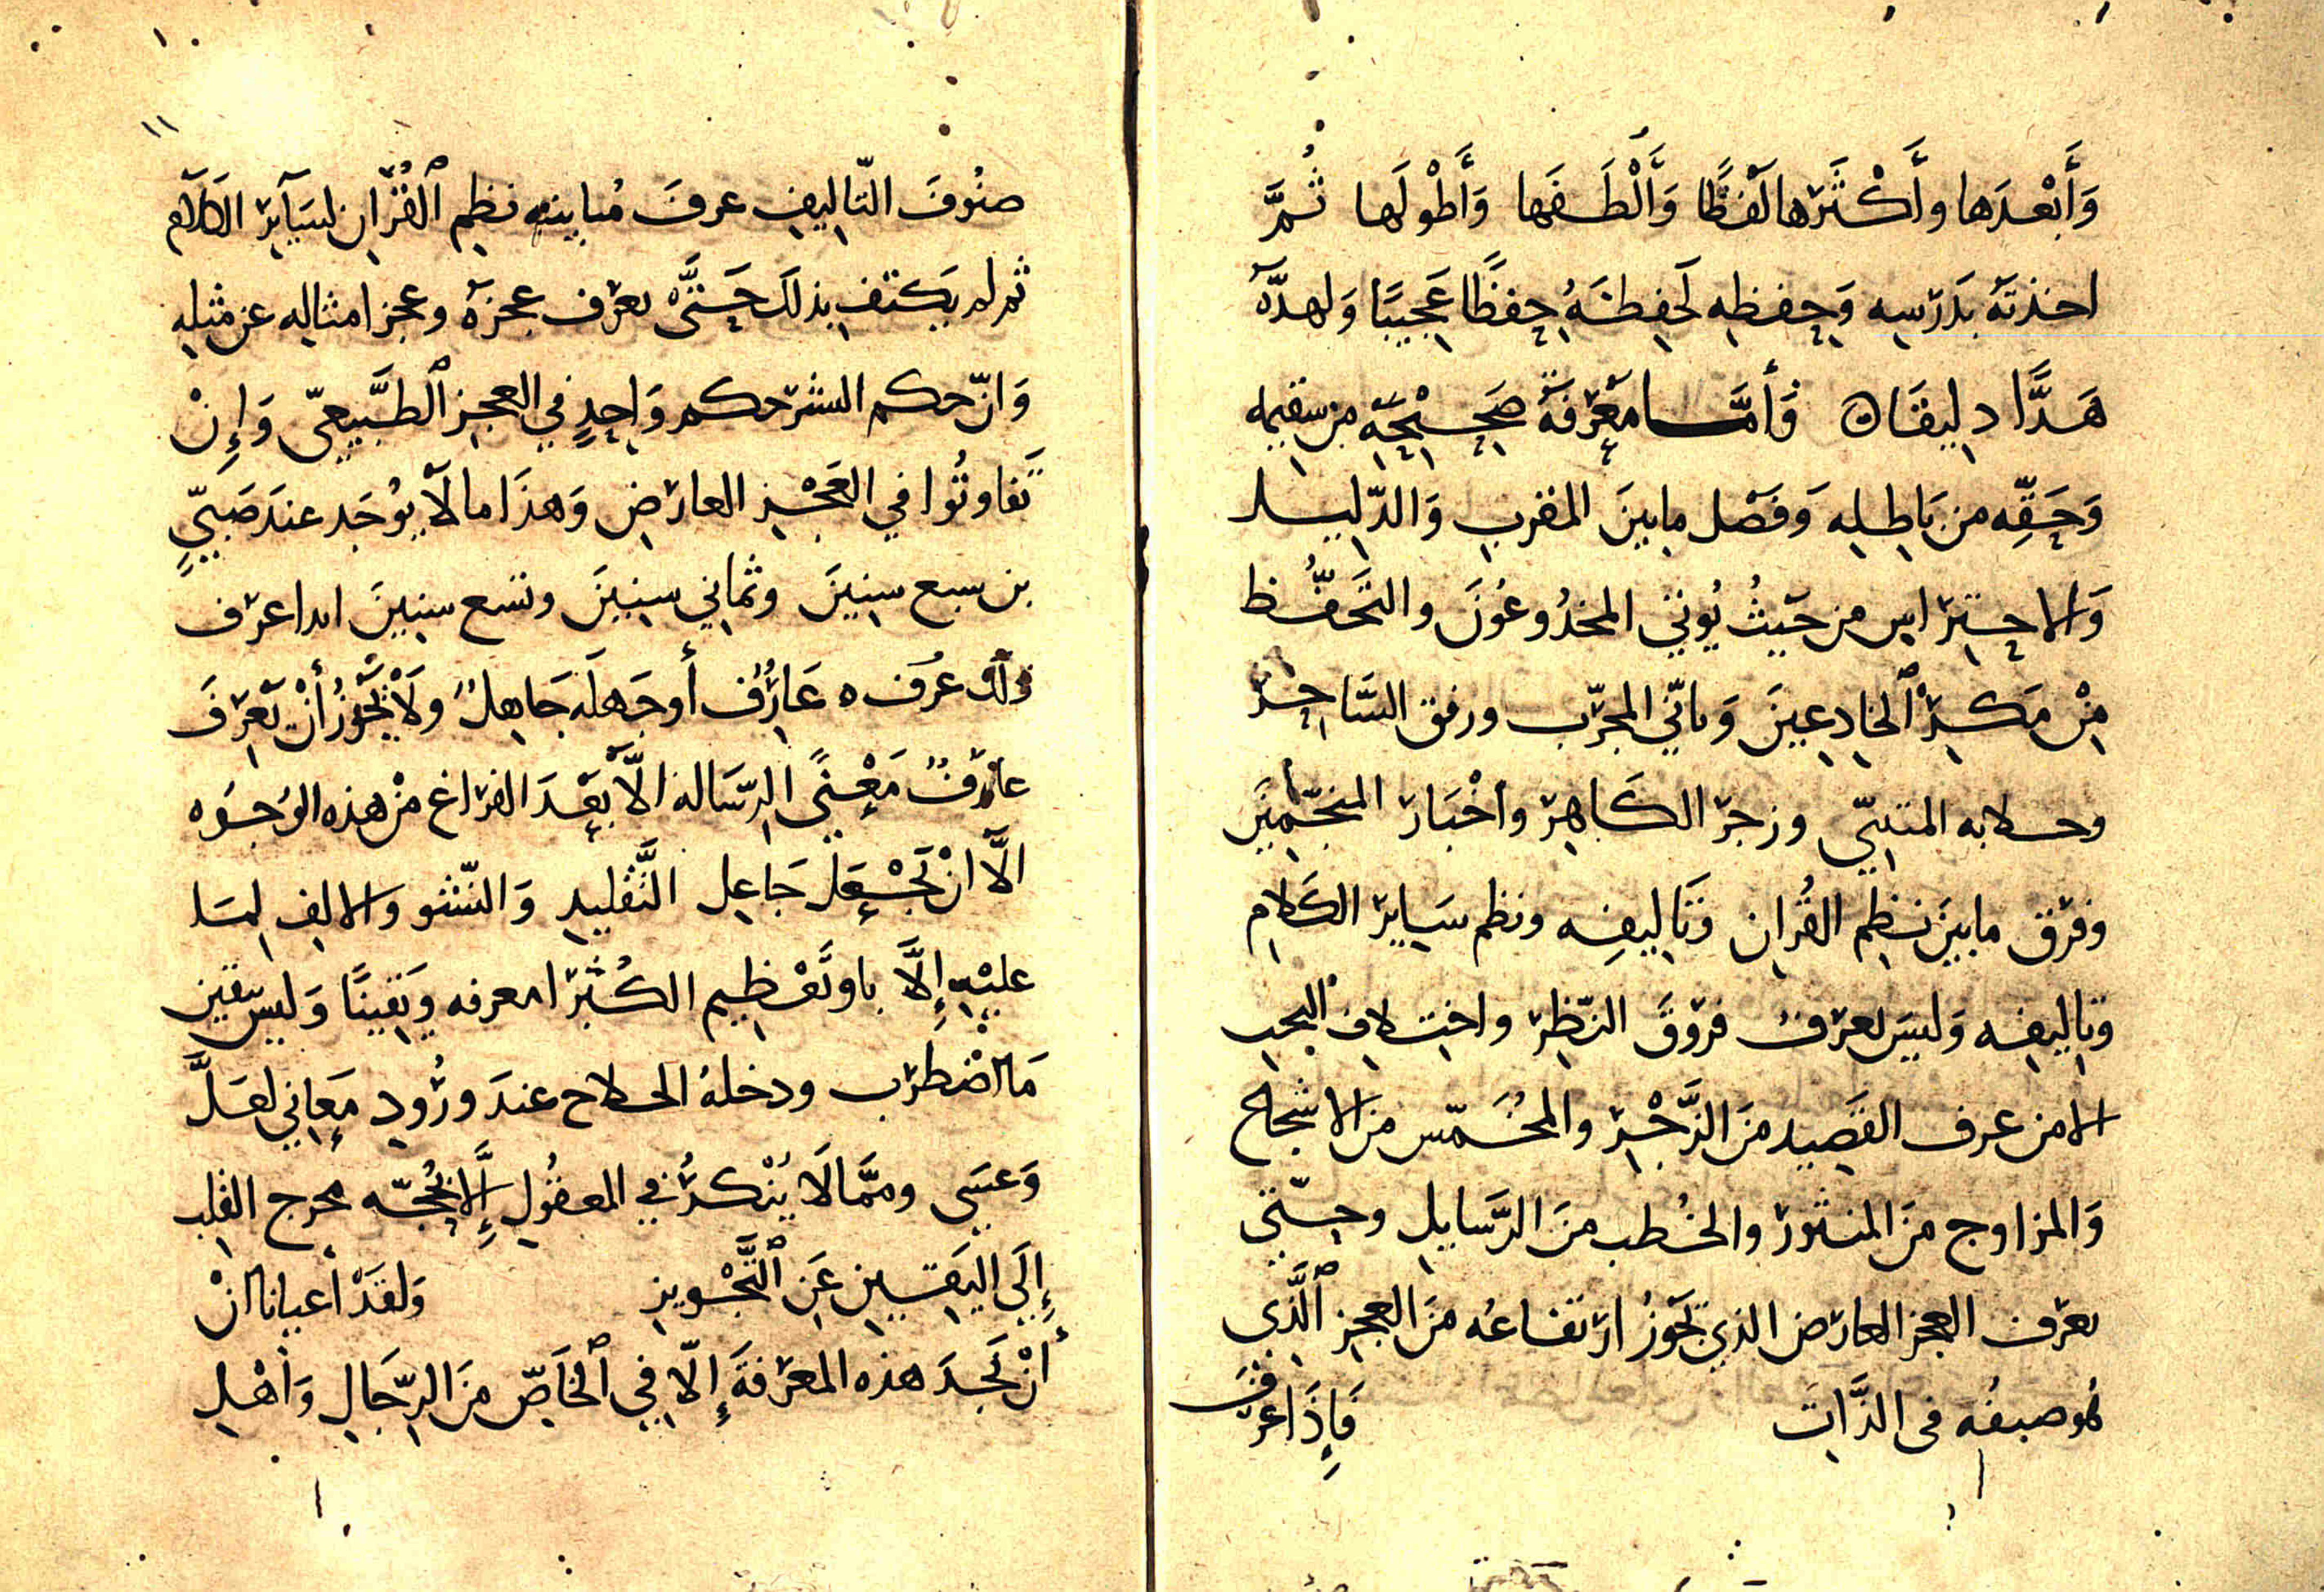 وَأَبْعَدَها وأَكْثَرَها لَفْظًا وَأَلْطَفَها وَأَطْولَها ثُمَّ
اخذتَه بدَرْسِه وَحِفظِه لَحفِظَهُ حِفظًا عَجِيبًا وَلهذّه
هَذًّا دلِيقًا ه فَأمَّا مَعْرِفَة صَحِيْحِه من سقيمه
وَحَقِّه من بَاطِلِه وَفَصْل مابينَ المقرب وَالدّليل
وَالاحتِرَاس من حَيثُ يُوتي المخدُوعُونَ والتَّحَفُّظ
مِنْ مَكرِ ٱلخادِعِينَ وَتاتّي المجرّب ورفق السَّاحِر
وخلابه المتنبّي وزجر الكَاهِن وأخْبَار المنجّمينَ
وفرْق مابينَ نظِم القُران وَتَاليفِه ونظم سَايِر الكَلام
وتاليفِه وَليسَ يعرفُ فرُوقَ النّظِر واختلاف البحب
الامن عرف القَصِيد منَ الرَّجْز والمخُمّس منَ الاشجاع
وَالمزاوج منَ المنثور والخُطب منَ الرَّسَايلِ وحتّي
يعرف العجز العارض الذي تجَوزُ ارتفاعُه منَ العجِز ٱلَّذِي
هُو صبفُه فى الذَّاتِ فَإِذَا عرَفَ
صنُوفَ التّاليفِ عرفَ مُباينه نظِم ٱلقُرْان لسَآيِر الكلَام
ثم لم يكتفِ بذلكَ حَتَّى يعرف عجزَهُ وعجز امثالِه عن مثلِه
وَانّ حكم البشر حكم وَاحِدٍ في العجز ٱلطَّبِيعيّ وَإِنْ
تَفاوتُوا في العَجْز العارضِ وَهذَا ما لَا يُوجَد عندَ صَبيٍّ
بن سبع سنِينَ وثماني سنِينَ وتسع سنِينَ ابدا عرف
ذلكَ عُرَف ه عَارِفُ أوجَهلَه جَاهِلٌ ولَا يجَّوزُ أنْ يعْرِفَ
عارِفٌ مَعْنَي الرسَاله الاّ بَعْدَ الفرَاغ منْ هذه الوُجُوه
الاَّ انْ تجْعَل جَاعِل التَّقليد وَالنّشو والالفِ لمَا
عليْهِ إِلَّا باوتَعْظيم الكُبَرا معرفه ويَقينًا وَليسَ يقين
مَا اضْطرَب ودخلهُ الخلاج عندَ ورُودِ مَعاني لعَلَّ
وَعسَي وممَّا لَا يُنْكرُ في المعقُولِ إِلَّا بحُجّه تخرج القلب
إِلَي اليَقِينِ عَنِ ٱلتَّجْويزِ وَلقَدْ أعيانا انْ
أنْ تجدَ هذه المعَرْفةَ إِلّا في ٱلخَاصِّ منَ الرّجَالِ وَأهْلِ